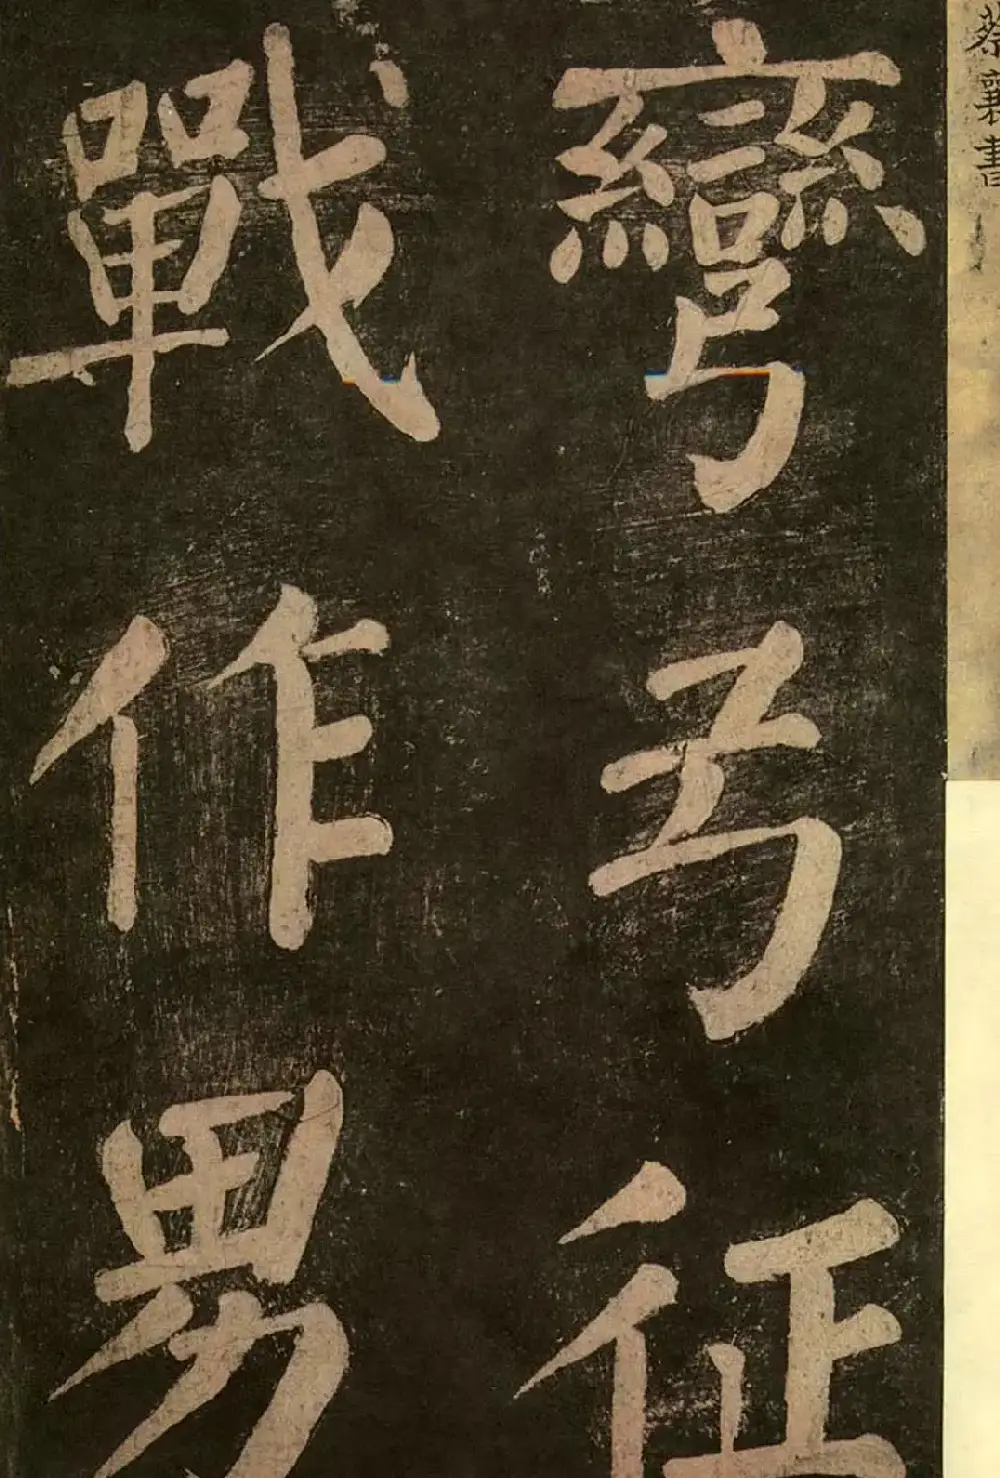 蔡襄書
彎弓征
戰作男